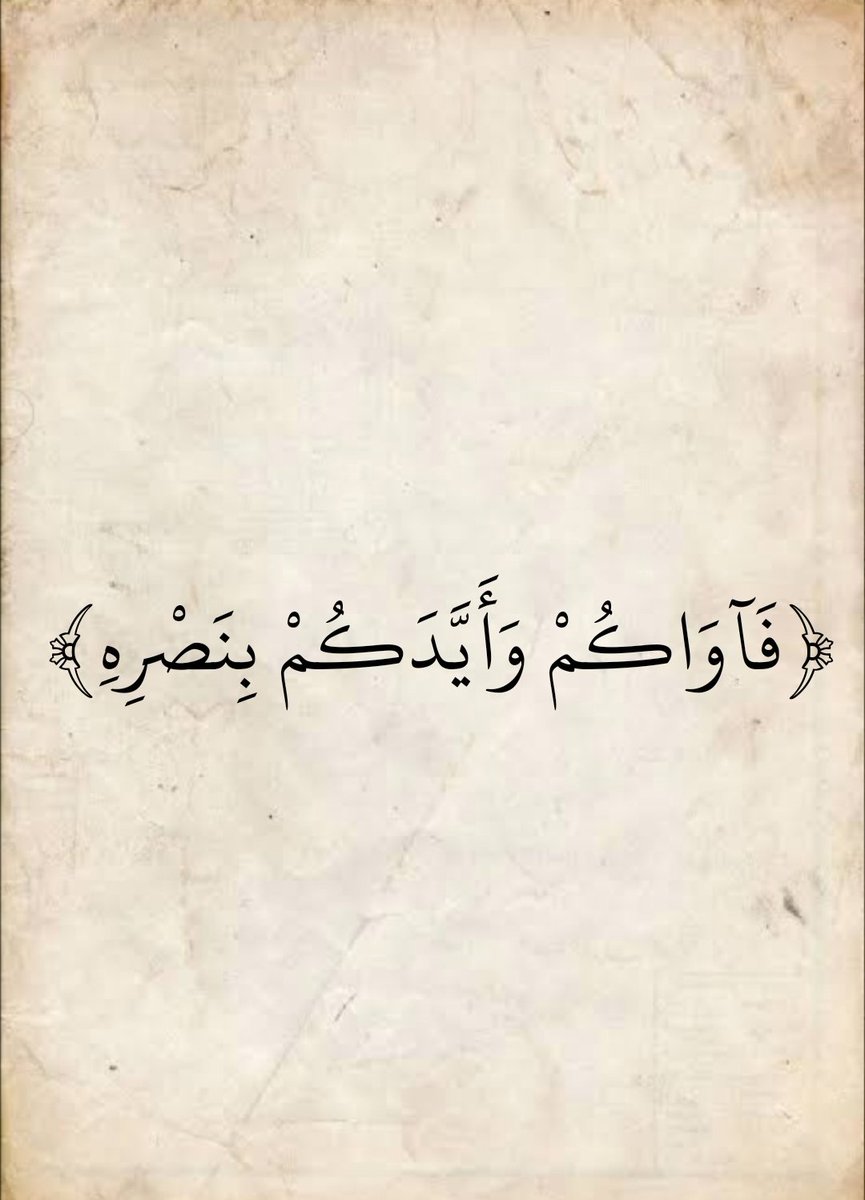 ﴿فَآوَاكُمْ وَأَيَّدَكُمْ بِنَصْرِهِ﴾